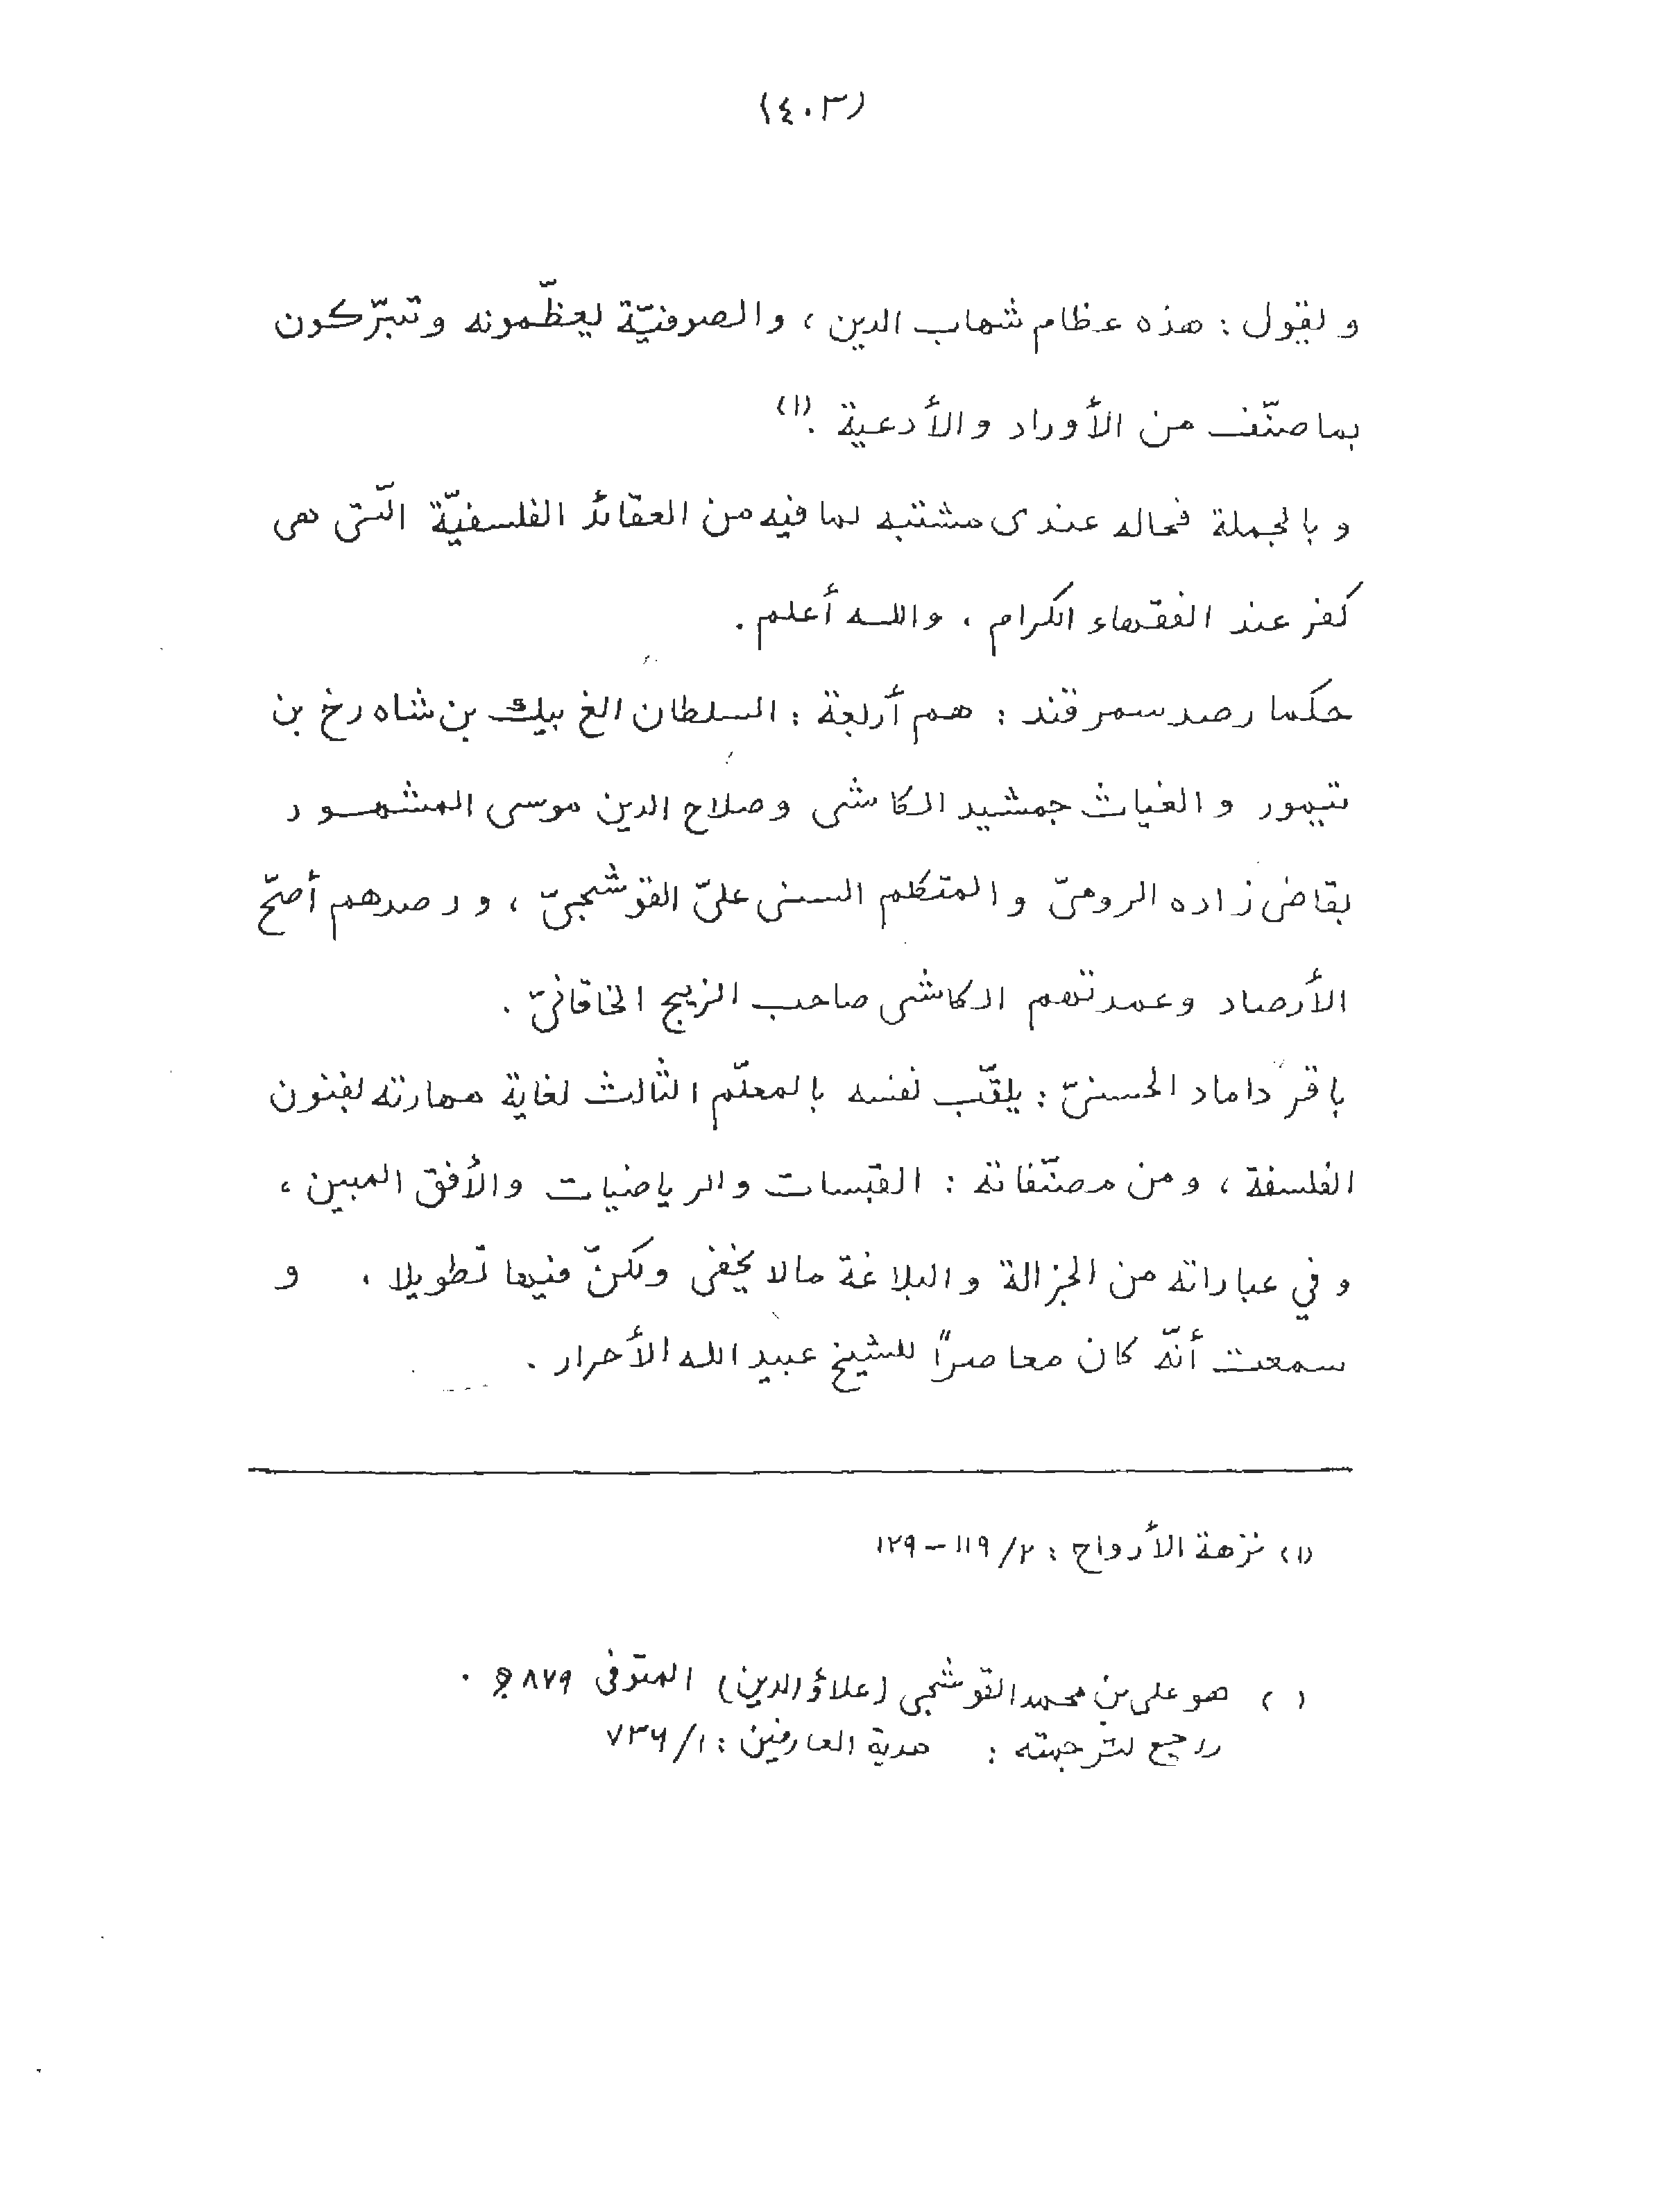 (٤٠٣)
و يقول : هذه عظام شهاب الدين ، والصوفيّة يعظّمونه وتتبرّكون
بما صنّف من الأوراد والأدعية .(١)
و بالجملة فحاله عندى مشتبه لما فيه من العقائد الفلسفيّة الّتى هى
كفر عند الفقهاء الكرام ، والله أعلم .
حكما رصد سمرقند : هم أربعة : السلطان الغ بيك بن شاه رخ بن
تيمور و الغياث جمشيد الكاشى وصلاح الدين موسى المشهور
بقاضى زاده الرومىّ و المتكلم السنى علىّ القوشجىّ ، و رصدهم أصحّ
الأرصاد وعمدتهم الكاشى صاحب الزيج الخاقانىّ .
باقر داماد الحسنىّ : يلقّب نفسه بالمعلّم الثالث لغاية مهارته بفنون
الفلسفة ، و من مصنّفاته : القبسات والرياضيات والأفق المبين ،
و في عباراته من الجزالة و البلاغة مالا يخفى ولكنّ فيها تطويلا ، و
سمعت أنّه كان معاصراً للشيخ عبيد الله الأحرار .
(١) نزهة الأرواح : ٢/ ١١٩ - ١٢٩
( ) هو على بن محمد القوشجى (علاؤ الدين) المتوفى ٨٧٩ ه .
راجع لترجمته : هدية العارفين : ١/ ٧٣٦